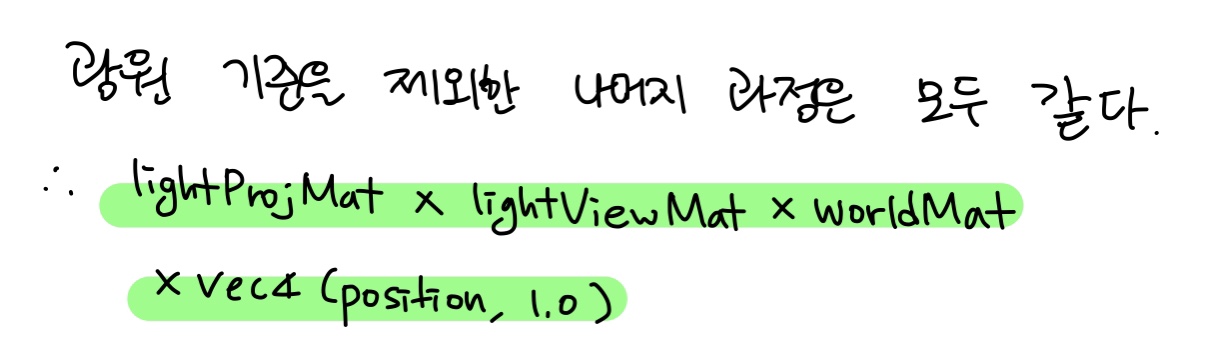 광원 기준을 제외한 나머지 과정은 모두 같다.
∴ lightProjMat × lightViewMat × worldMat
× vec4 (position, 1.0)